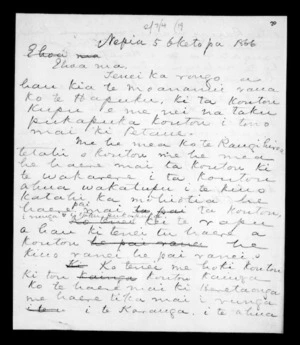 Nepia 5 Oketopa 1866
E hoa ma
E hoa ma,
Tenei ka rongo a
hau kia te Moananui raua
ko te Hapuku, ki ta koutou
kupu ki me nei na taku
pukapuka koutou i tono
mai ki Petane.
Me he mea ko te Rangi
tetahi o koutou me he mea
he haere mai ta koutou ki
te whakarere i ta koutou
ahua whakatupu i te kino
katahi ka
haere mai ta koutou,
a hau ki tenei tu haere a
koutou he pai ranei he
kino ranei he pai ranei.
Ko tenei me hoki koutou
ki ton kainga koutou
ko te haere mai ki Heretaunga
me haere tika mai i runga
i te Karanga, i te ahua